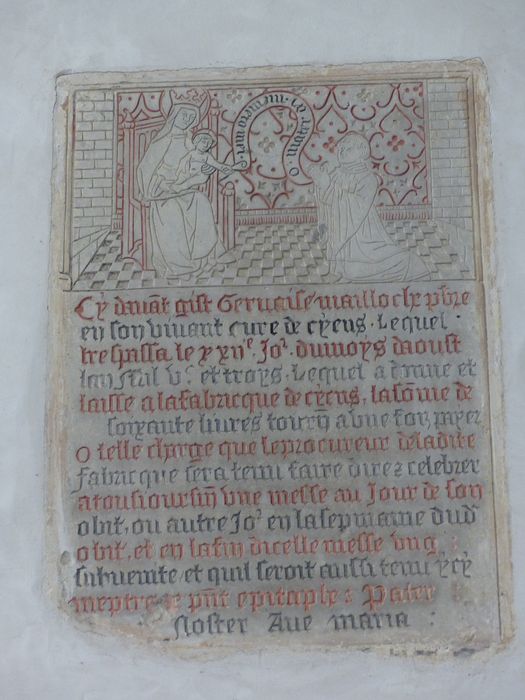 O mater dei memento mei
Cy davāt gist Gervaise maillo chr p̄bre
en son vivant cure de cyens . Lequel
trespassa le xxiie . Jor . du moys daoust
lan mil vc et troys . Lequel a donne et
laisse a la fabricque de cyens , la sōme de
soixante livres tourn a une foy, payer
o telle charge que le procureur de ladite
fabricque sera tenu faire dire z celebrer
a tousiours une messe au Jour de son
obit, ou autre Jor en la sepmaine dud
obit, et en la fin dicelle messe ung
subvenite, et quil seroit aussi tenu ycy
meptre le p̄nt epitaphe : Pater
Noster Ave maria :